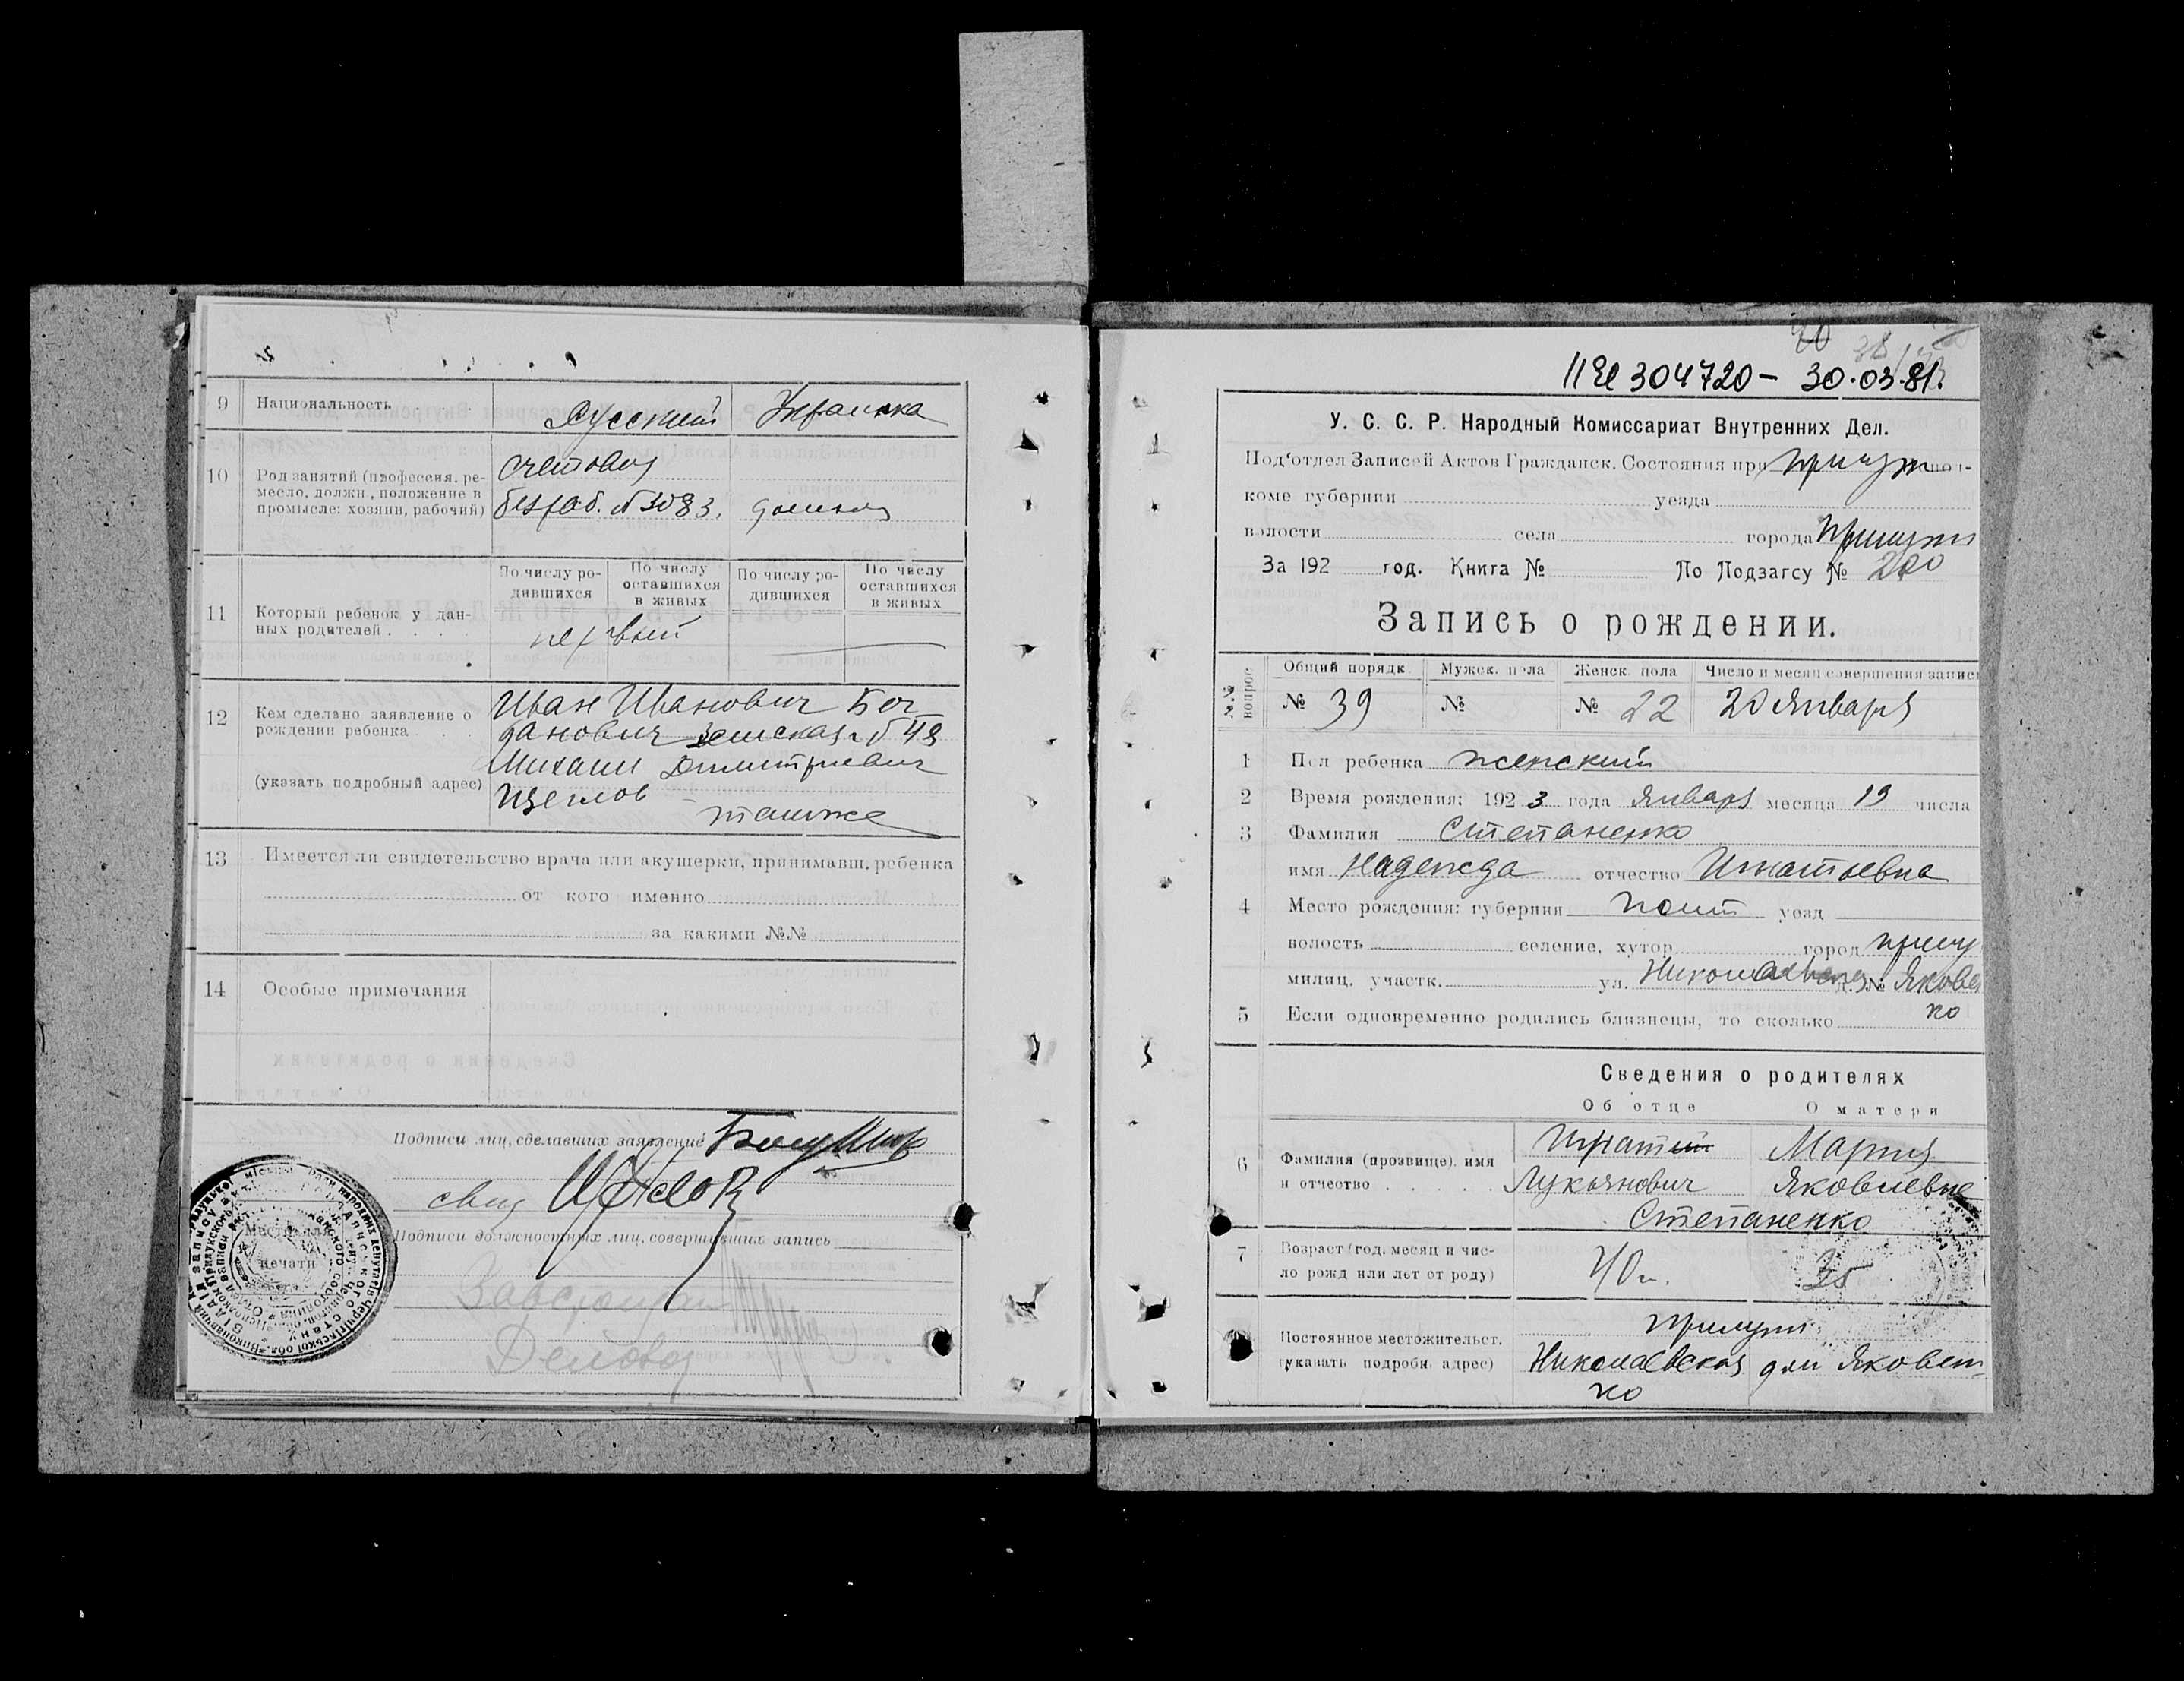 9 Национальность Русский Украинка
10 Род занятий (профессия, ре-
месло, должн., положение в
промысле: хозяин, рабочий)
счетовод
безраб. №3083. домохоз
11 Который ребенок у дан-
ных родителей
По числу ро-
дившихся
По числу
оставшихся
в живых
По числу ро-
дившихся
По числу
оставшихся
в живых
первый
12 Кем сделано заявление о
рождении ребенка
(указать подробный адрес)
Иван Иванович Бог
данович Земская № 48
Михаил Димитриевич
Щеглов
также
13 Имеется ли свидетельство врача или акушерки, принимавш. ребенка
от кого именно
за какими №№
14 Особые примечания
Подписи лиц, сделавших заявление
свид
Подписи должностных лиц, совершивших запись
Место для
печати
Завстолом
Деловод
20
304720 - 30.03.81.
У. С. С. Р. Народный Комиссариат Внутренних Дел.
Под'отдел Записей Актов Гражданск. Состояния при
коме губернии уезда
волости села города
За 192 год. Книга № По Подзагсу № 200
Запись о рождении.
№№ вопрос
Общий порядк. Мужск. пола Женск. пола Число и месяц совершения записи
№ 39 № № 22 20 Января
1 Пол ребенка женский
2 Время рождения: 1923 года Января месяца 19 числа
3 Фамилия Степаненко
имя Надежда отчество Игнатьевна
4 Место рождения: губерния Полт уезд
волость селение, хутор город Прилу
милиц. участк. ул. Николаевская д. № Яковен
ко
5 Если одновременно родились близнецы, то сколько
Сведения о родителях
Об отце О матери
6 Фамилия (прозвище), имя
и отчество
Игнатий Мария
Лукьянович Яковлевна
Степаненко
7 Возраст (год, месяц и чис-
ло рожд или лет от роду)
40 л. 35
Постоянное местожительст.
(указать подробн. адрес)
Прилуки
Николаевская дом Яковен
ко